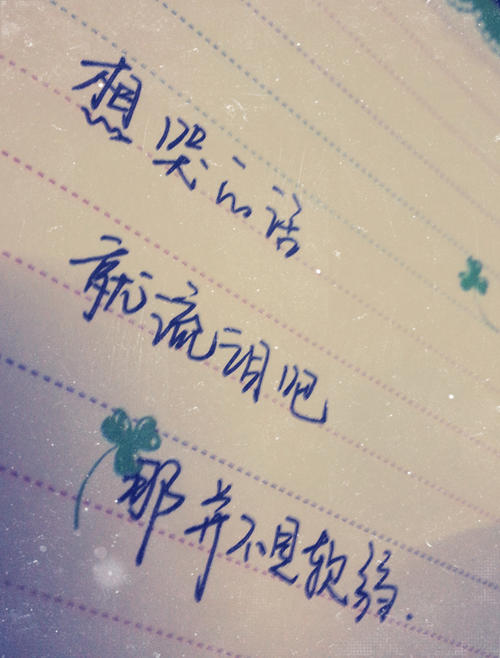 想哭的话
就流泪吧
那并不是软弱.